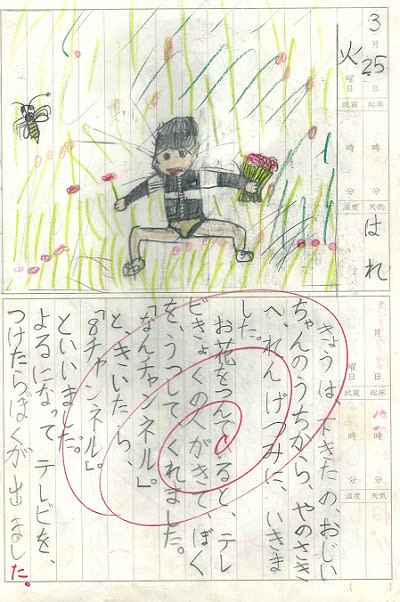 3月25日 起床 時 分 天気 はれ
火曜日 就寝 時 分 温度
月 日 起床 時 分 天気
曜日 就寝 時 分 温度
きょうは、下きたの、おじい
ちゃんのうちから、やのさき
へ、れんげつみに、いきま
した。
お花をつんでいると、テレ
ビきょくの人がきてぼく
を、うつしてくれました。
「なんチャンネル」。
と、きいたら、
「8チャンネル」。
といいました。
よるになって テレビを、
つけたらぼくが出ました。